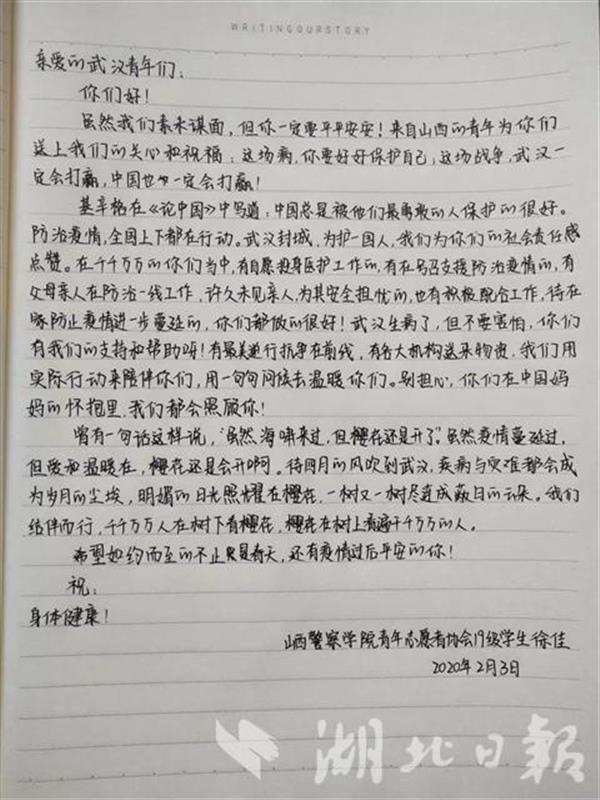 WRITINGOURSTORY
亲爱的武汉青年们：
你们好！
虽然我们素未谋面，但你一定要平平安安！来自山西的青年为你们
送上我们的关心和祝福：这场病，你要好好保护自己；这场战争，武汉一
定会打赢，中国也一定会打赢！
基辛格在《论中国》中写道，中国总是被他们最勇敢的人保护的很好。
防治疫情，全国上下都在行动。武汉封城，为护一国人，我们为你们的社会责任感
点赞。在千千万万的你们当中，有自愿投身医护工作的，有在号召支援防治疫情的，有
父母亲人在防治一线工作，许久未见亲人，为其安全担忧的，也有积极配合工作，待在
家防止疫情进一步蔓延的，你们都做的很好！武汉生病了，但不要害怕，你们
有我们的支持和帮助呀！有最美逆行抗争在前线，有各大机构送来物资，我们用
实际行动来陪伴你们，用一句句问候去温暖你们。别担心，你们在中国妈
妈的怀抱里，我们都会照顾你！
曾有一句话这样说，“虽然海啸来过，但樱花还是开了”。虽然疫情蔓延过，
但爱和温暖在，樱花还是会开啊。待四月的风吹到武汉，疾病与灾难都会成
为岁月的尘埃，明媚的日光照耀在樱花，一树又一树尽连成蔽日的云朵。我们
结伴而行，千千万万人在树下看樱花，樱花在树上看遍千千万万的人。
希望如约而至的不止只是春天，还有疫情过后平安的你！
祝：
身体健康！
山西警察学院青年志愿者协会19级学生徐佳
2020年2月3日
湖北日報